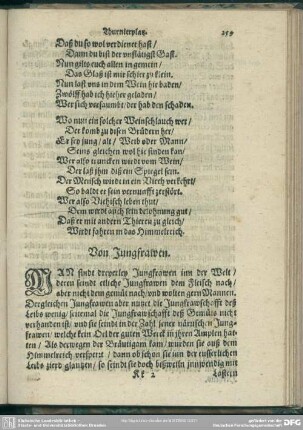 Thurnierplatz. 259
Daß du so wol verdienet hast /
Dann du bist der unsläugst Gast.
Nun gilts euch allen in gemein /
Das Glaß ist mir schier zu klein,
Nun last uns in dem Wein hie baden /
Zwölff hab ich hieher geladen /
Wer sich versaumbt / der hab den schaden.
Wo nun ein solcher Weinschlauch wer /
Der komb zu disen Brüdern her /
Er sey jung / alt / Weib oder Mann /
Seins gleichen wol hie finden kan /
Wer also truncken wirdt vom Wein /
Der laß ihm diß ein Spiegel sein.
Der Mensch wirdt in ein Viech verkehrt /
So baldt er sein vernunfft zerstört.
Wer also Viehisch leben thut /
Dem wirdt auch sein belohnung gut /
Daß er mit andern Thieren zu gleich /
Wirdt fahren in das Himmelreich.
Von Jungfrawen.
MAN findt dreyerley Jungfrawen inn der Welt /
deren seindt etliche Jungfrawen dem Fleisch nach /
aber nicht dem gemüt nach / und wolten gern Mannen.
Dergleichen Jungfrawen aber nutzt die Jungfrawschafft deß
Leibs wenig / seitemal die Jungfrawschafft deß Gemüts nicht
verhanden ist / und sie seindt in der Zahl jener närrischen Jung-
frawen / welche kein Oel der guten Werck in jhren Ampeln hat-
ten / Als derwegen der Bräutigam kam / wurden sie auß dem
Himmelreich versperrt / dann ob schon sie inn der eusserlichen
Leibs zierd glantzen / so seindt sie doch bißweiln innwendig mit
Kk 2 Lastern